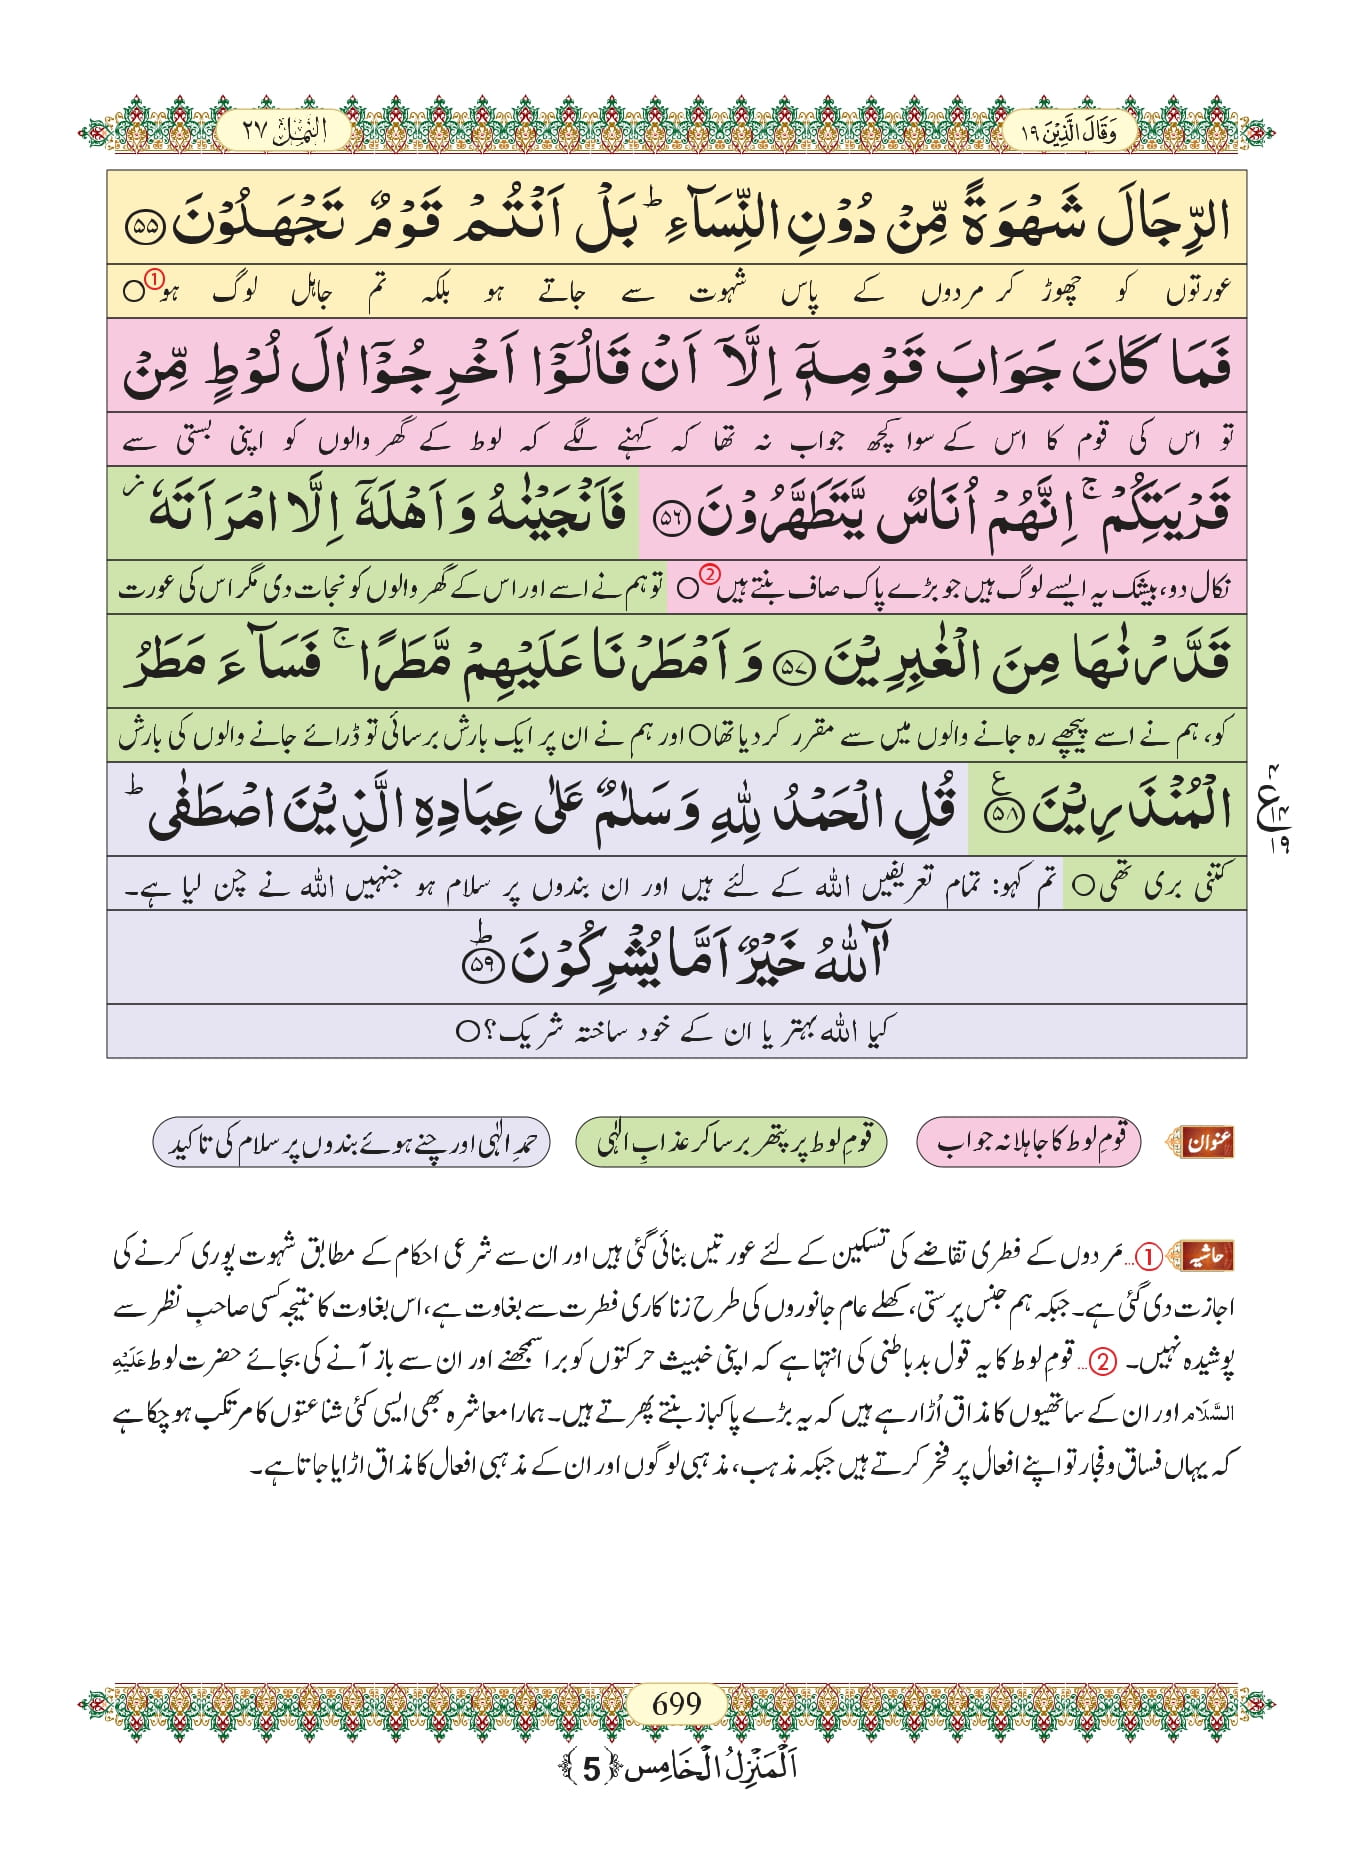 وَقَالَ الَّذِيْنَ ١٩
النَّمْل ٢٧
الرِّجَالَ شَهْوَةً مِّنْ دُوْنِ النِّسَآءِ ؕ بَلْ اَنْتُمْ قَوْمٌ تَجْهَلُوْنَ ﴿۵۵﴾
عورتوں کو چھوڑ کر مردوں کے پاس شہوت سے جاتے ہو بلکہ تم جاہل لوگ ہو① ○
فَمَا كَانَ جَوَابَ قَوْمِهٖۤ اِلَّاۤ اَنْ قَالُوْۤا اَخْرِجُوْۤا اٰلَ لُوْطٍ مِّنْ
تو اس کی قوم کا اس کے سوا کچھ جواب نہ تھا کہ کہنے لگے کہ لوط کے گھر والوں کو اپنی بستی سے
قَرْيَتِكُمْ ۚ اِنَّهُمْ اُنَاسٌ يَّتَطَهَّرُوْنَ ﴿۵۶﴾ فَاَنْجَيْنٰهُ وَ اَهْلَهٗۤ اِلَّا امْرَاَتَهٗ ؗ
نکال دو، بیشک یہ ایسے لوگ ہیں جو بڑے پاک صاف بنتے ہیں② ○ تو ہم نے اسے اور اس کے گھر والوں کو نجات دی مگر اس کی عورت
قَدَّرْنٰهَا مِنَ الْغٰبِرِيْنَ ﴿۵۷﴾ وَ اَمْطَرْنَا عَلَيْهِمْ مَّطَرًا ۚ فَسَآءَ مَطَرُ
کو، ہم نے اسے پیچھے رہ جانے والوں میں سے مقرر کر دیا تھا○ اور ہم نے ان پر ایک بارش برسائی تو ڈرائے جانے والوں کی بارش
الْمُنْذَرِيْنَ ﴿۵۸﴾ ع قُلِ الْحَمْدُ لِلّٰهِ وَ سَلٰمٌ عَلٰى عِبَادِهِ الَّذِيْنَ اصْطَفٰى ؕ
۴ ع ۱۴ ۱۹
کتنی بری تھی○ تم کہو: تمام تعریفیں اللہ کے لئے ہیں اور ان بندوں پر سلام ہو جنہیں اللہ نے چن لیا ہے۔
آٰللّٰهُ خَيْرٌ اَمَّا يُشْرِكُوْنَ ؕ ﴿۵۹﴾
کیا اللہ بہتر یا ان کے خود ساختہ شریک؟○
عنوان قومِ لوط کا جاہلانہ جواب قومِ لوط پر پتھر برسا کر عذابِ الٰہی حمدِ الٰہی اور چنے ہوئے بندوں پر سلام کی تاکید
حاشیہ ①... مَردوں کے فطری تقاضے کی تسکین کے لئے عورتیں بنائی گئی ہیں اور ان سے شرعی احکام کے مطابق شہوت پوری کرنے کی
اجازت دی گئی ہے۔ جبکہ ہم جنس پرستی، کھلے عام جانوروں کی طرح زناکاری فطرت سے بغاوت ہے، اس بغاوت کا نتیجہ کسی صاحبِ نظر سے
پوشیدہ نہیں۔ ②... قومِ لوط کا یہ قول بدباطنی کی انتہا ہے کہ اپنی خبیث حرکتوں کو برا سمجھنے اور ان سے باز آنے کی بجائے حضرت لوط عَلَيْهِ
السَّلَام اور ان کے ساتھیوں کا مذاق اُڑا رہے ہیں کہ یہ بڑے پاکباز بنتے پھرتے ہیں۔ ہمارا معاشرہ بھی ایسی کئی شناعتوں کا مرتکب ہو چکا ہے
کہ یہاں فساق و فجار تو اپنے افعال پر فخر کرتے ہیں جبکہ مذہب، مذہبی لوگوں اور ان کے مذہبی افعال کا مذاق اڑایا جاتا ہے۔
699
اَلْمَنْزِلُ الْخَامِس ﴿5﴾